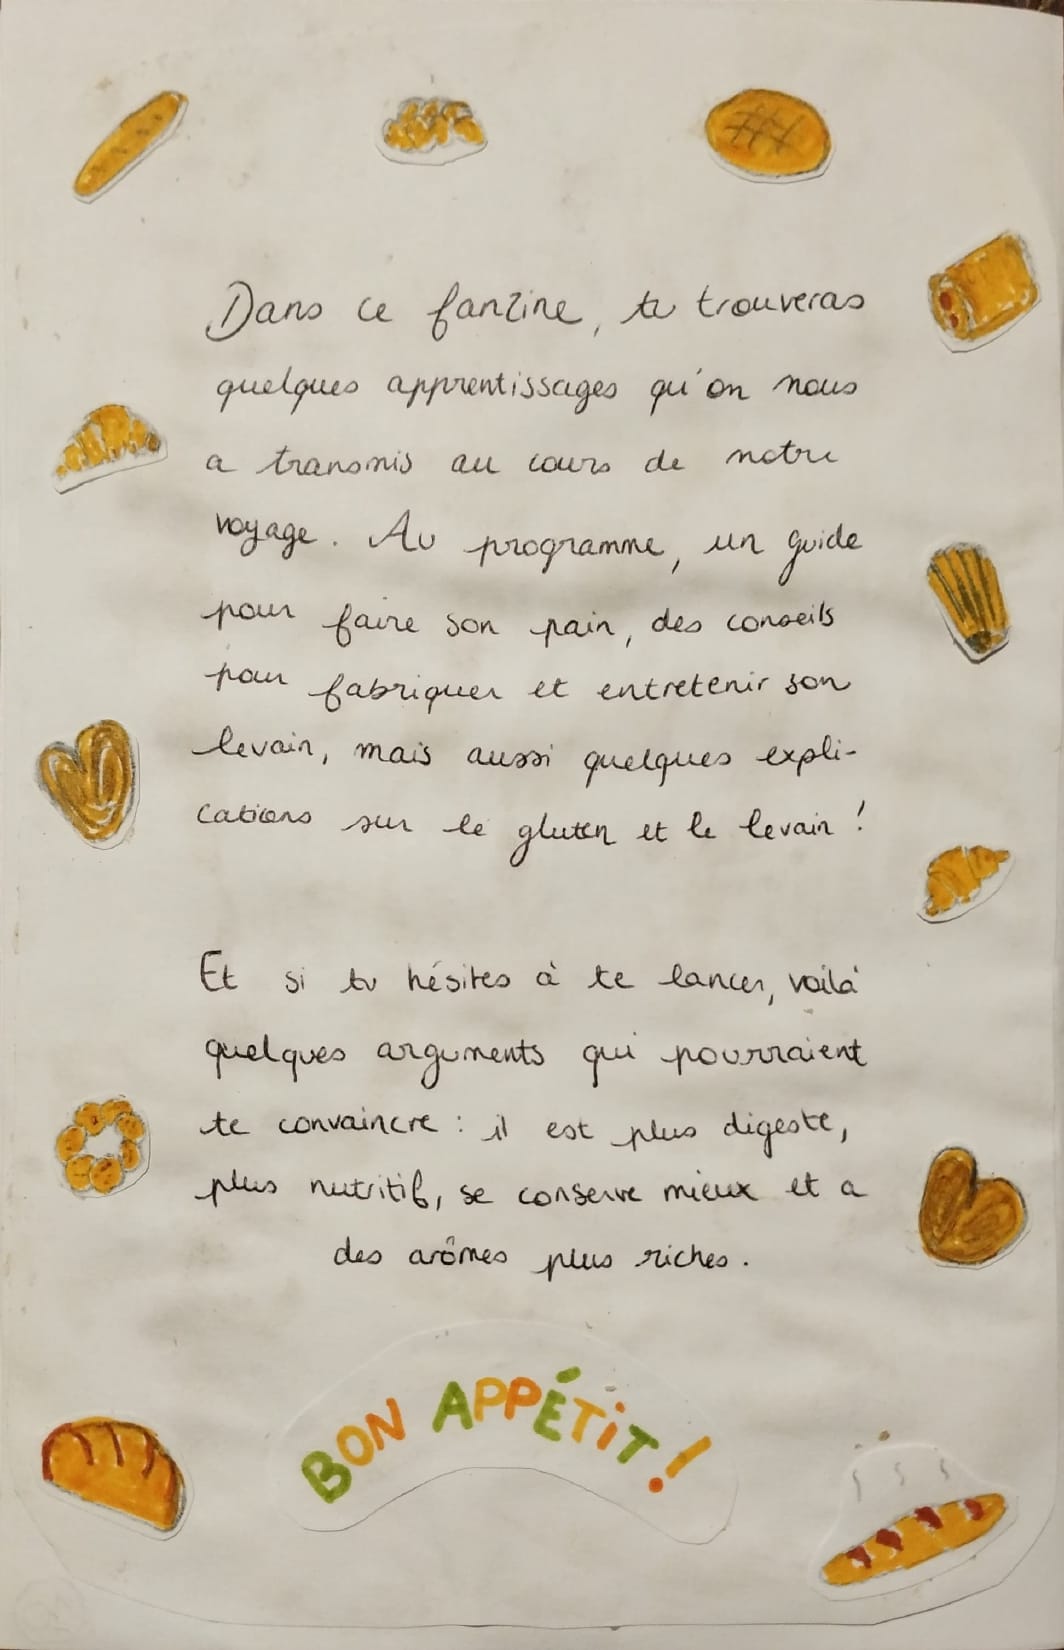 Dans ce fanzine, tu trouveras
quelques apprentissages qu'on nous
a transmis au cours de notre
voyage. Au programme, un guide
pour faire son pain, des conseils
pour fabriquer et entretenir son
levain, mais aussi quelques expli-
cations sur le gluten et le levain !
Et si tu hésites à te lancer, voilà
quelques arguments qui pourraient
te convaincre : il est plus digeste,
plus nutritif, se conserve mieux et a
des arômes plus riches.
BON APPÉTiT !